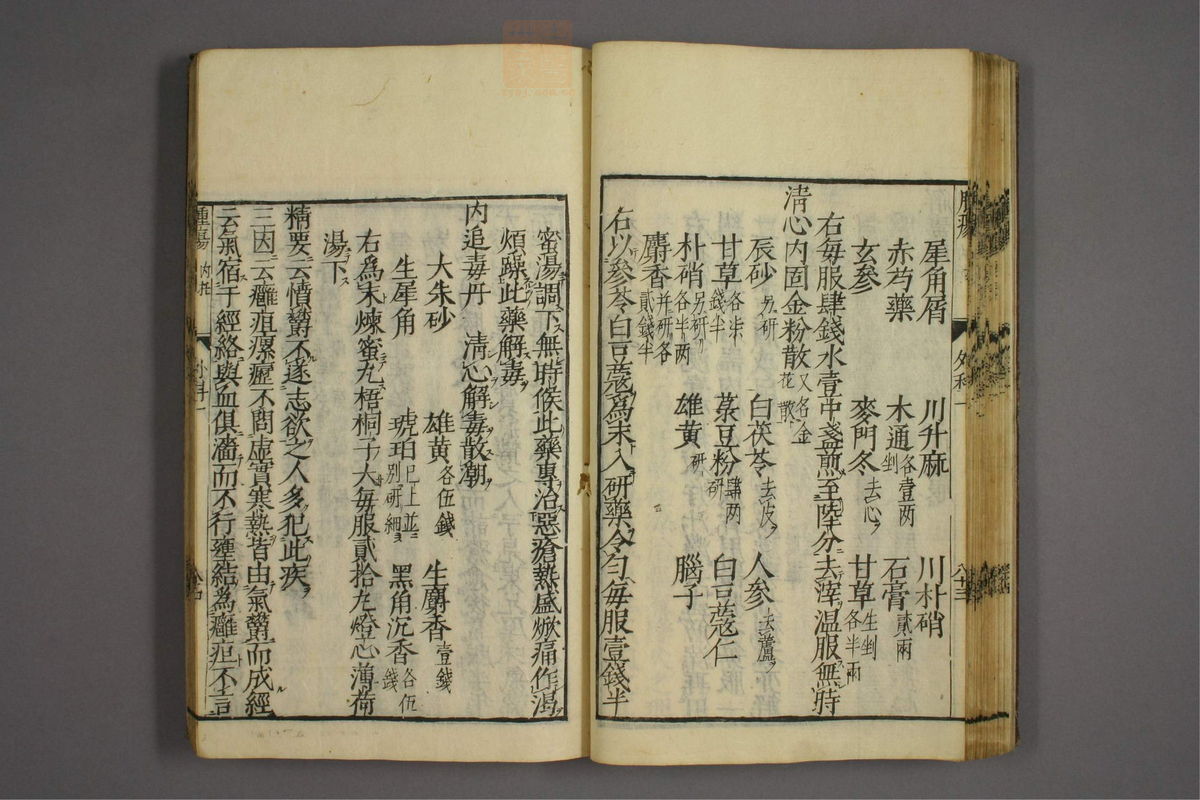 犀角屑 川升麻 川朴硝
赤芍藥 木通各壹两剉 石膏貳兩
玄參 麥門冬去心 甘草生剉各半兩
右每服肆錢水壹中盞煎至陸分去滓温服無時
清心内固金粉散又名金花散
辰砂另研 白茯苓去皮 人參去蘆
甘草各半錢半 菉豆粉肆两研 白豆蔻仁
朴硝另研各半两 雄黄研 腦子
麝香并研各貳錢半
右以參苓白豆蔻為末入研藥令匀每服壹錢半
蜜湯調下無時候此藥專治惡瘡熱盛焮痛作渴
煩躁此藥解毒
内追毒丹 清心解毒散潮
大朱砂 雄黄各伍錢 生麝香壹錢
生犀角 琥珀已上並别研細 黑角沉香各伍錢
右為末煉蜜丸梧桐子大每服貳拾丸燈心薄荷
湯下
精要云憤鬱不遂志欲之人多犯此疾
三因云癰疽瘰癧不問虚實寒熱皆由氣鬱而成經
云氣宿于經絡與血俱濇而不行壅結為癰疽不言
腫瘍 内托 外科一